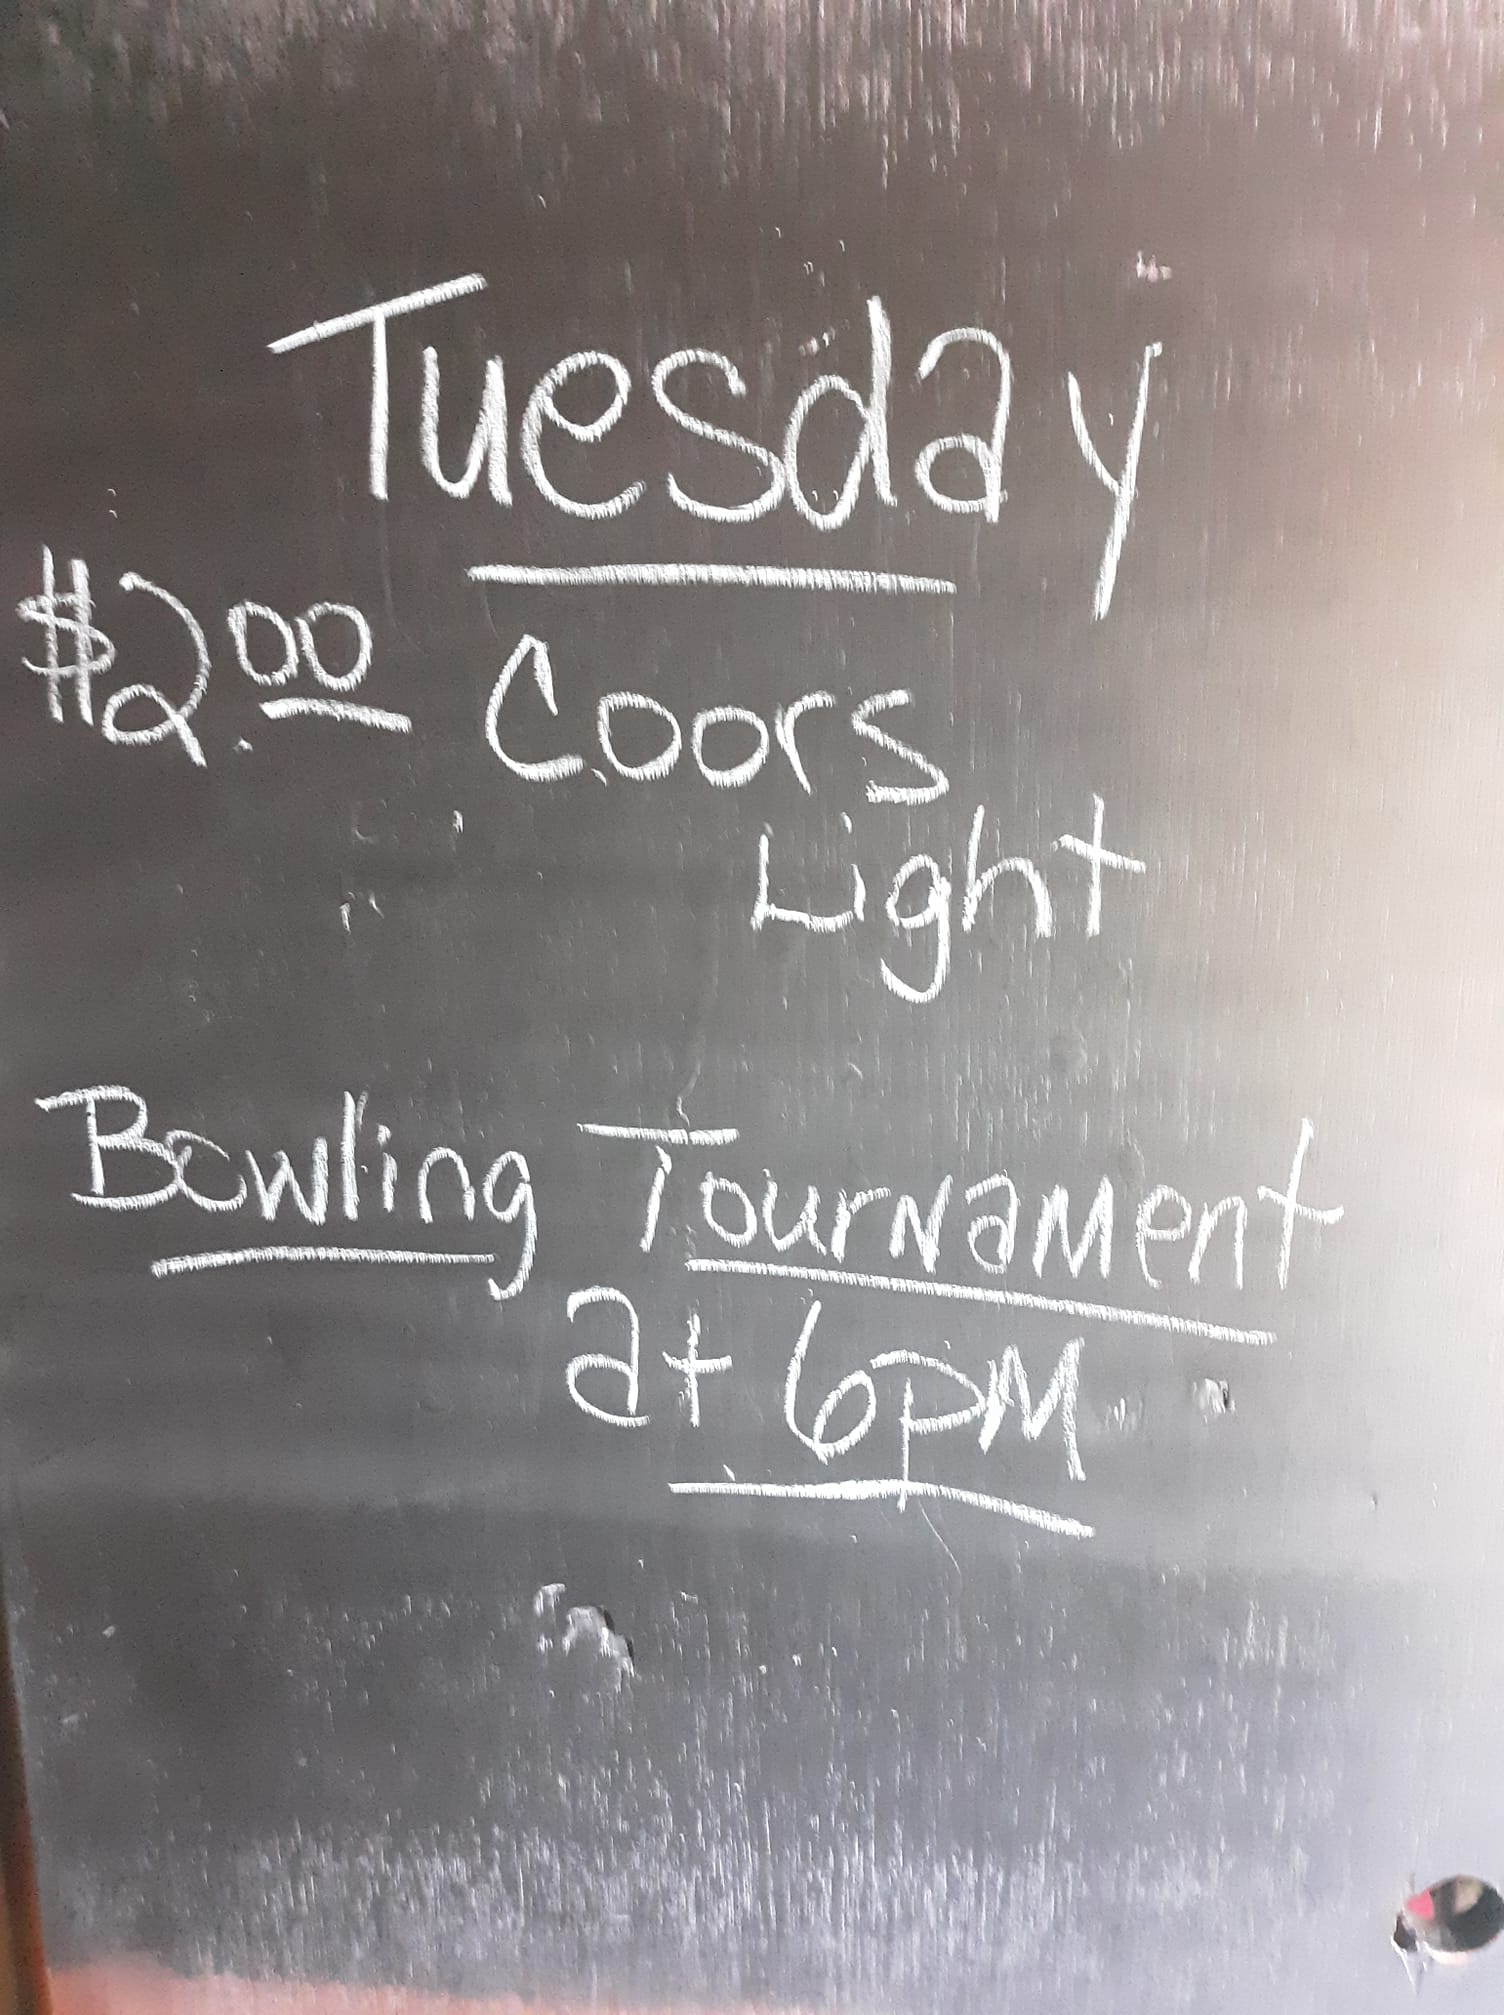 Tuesday
$2.00 Coors
Light
Bowling Tournament
at 6pM